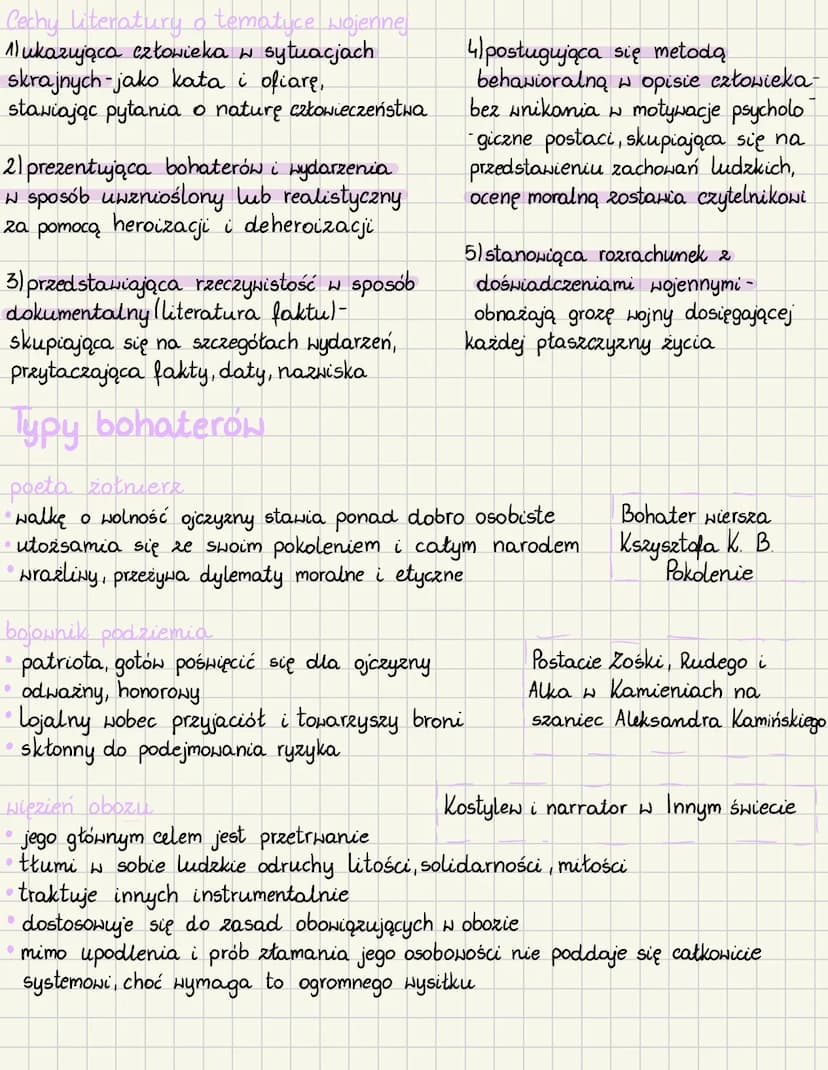 Cechy literatury o tematyce wojennej
1) ukazująca człowieka w sytuacjach
skrajnych - jako kata i ofiarę,
stawiając pytania o naturę człowieczeństwa
2) prezentująca bohaterów i wydarzenia
w sposób uwznioślony lub realistyczny
za pomocą heroizacji i deheroizacji
3) przedstawiająca rzeczywistość w sposób
dokumentalny (literatura faktu) -
skupiająca się na szczegółach wydarzeń,
przytaczająca fakty, daty, nazwiska
4) posługująca się metodą
behawioralną w opisie człowieka -
bez wnikania w motywacje psycholo -
- giczne postaci, skupiająca się na
przedstawieniu zachowań ludzkich,
ocenę moralną zostawia czytelnikowi
5) stanowiąca rozrachunek z
doświadczeniami wojennymi -
obnażają grozę wojny dosięgającej
każdej płaszczyzny życia
Typy bohaterów
poeta żołnierz
• walkę o wolność ojczyzny stawia ponad dobro osobiste
• utożsamia się ze swoim pokoleniem i całym narodem
• wrażliwy, przeżywa dylematy moralne i etyczne
Bohater wiersza
Kszysztofa K. B.
Pokolenie
bojownik podziemia
• patriota, gotów poświęcić się dla ojczyzny
• odważny, honorowy
• lojalny wobec przyjaciół i towarzyszy broni
• skłonny do podejmowania ryzyka
Postacie Zośki, Rudego i
Alka w Kamieniach na
szaniec Aleksandra Kamińskiego
więzień obozu
Kostylew i narrator w Innym świecie
• jego głównym celem jest przetrwanie
• tłumi w sobie ludzkie odruchy litości, solidarności, miłości
• traktuje innych instrumentalnie
• dostosowuje się do zasad obowiązujących w obozie
• mimo upodlenia i prób złamania jego osobowości nie poddaje się całkowicie
systemowi, choć wymaga to ogromnego wysiłku